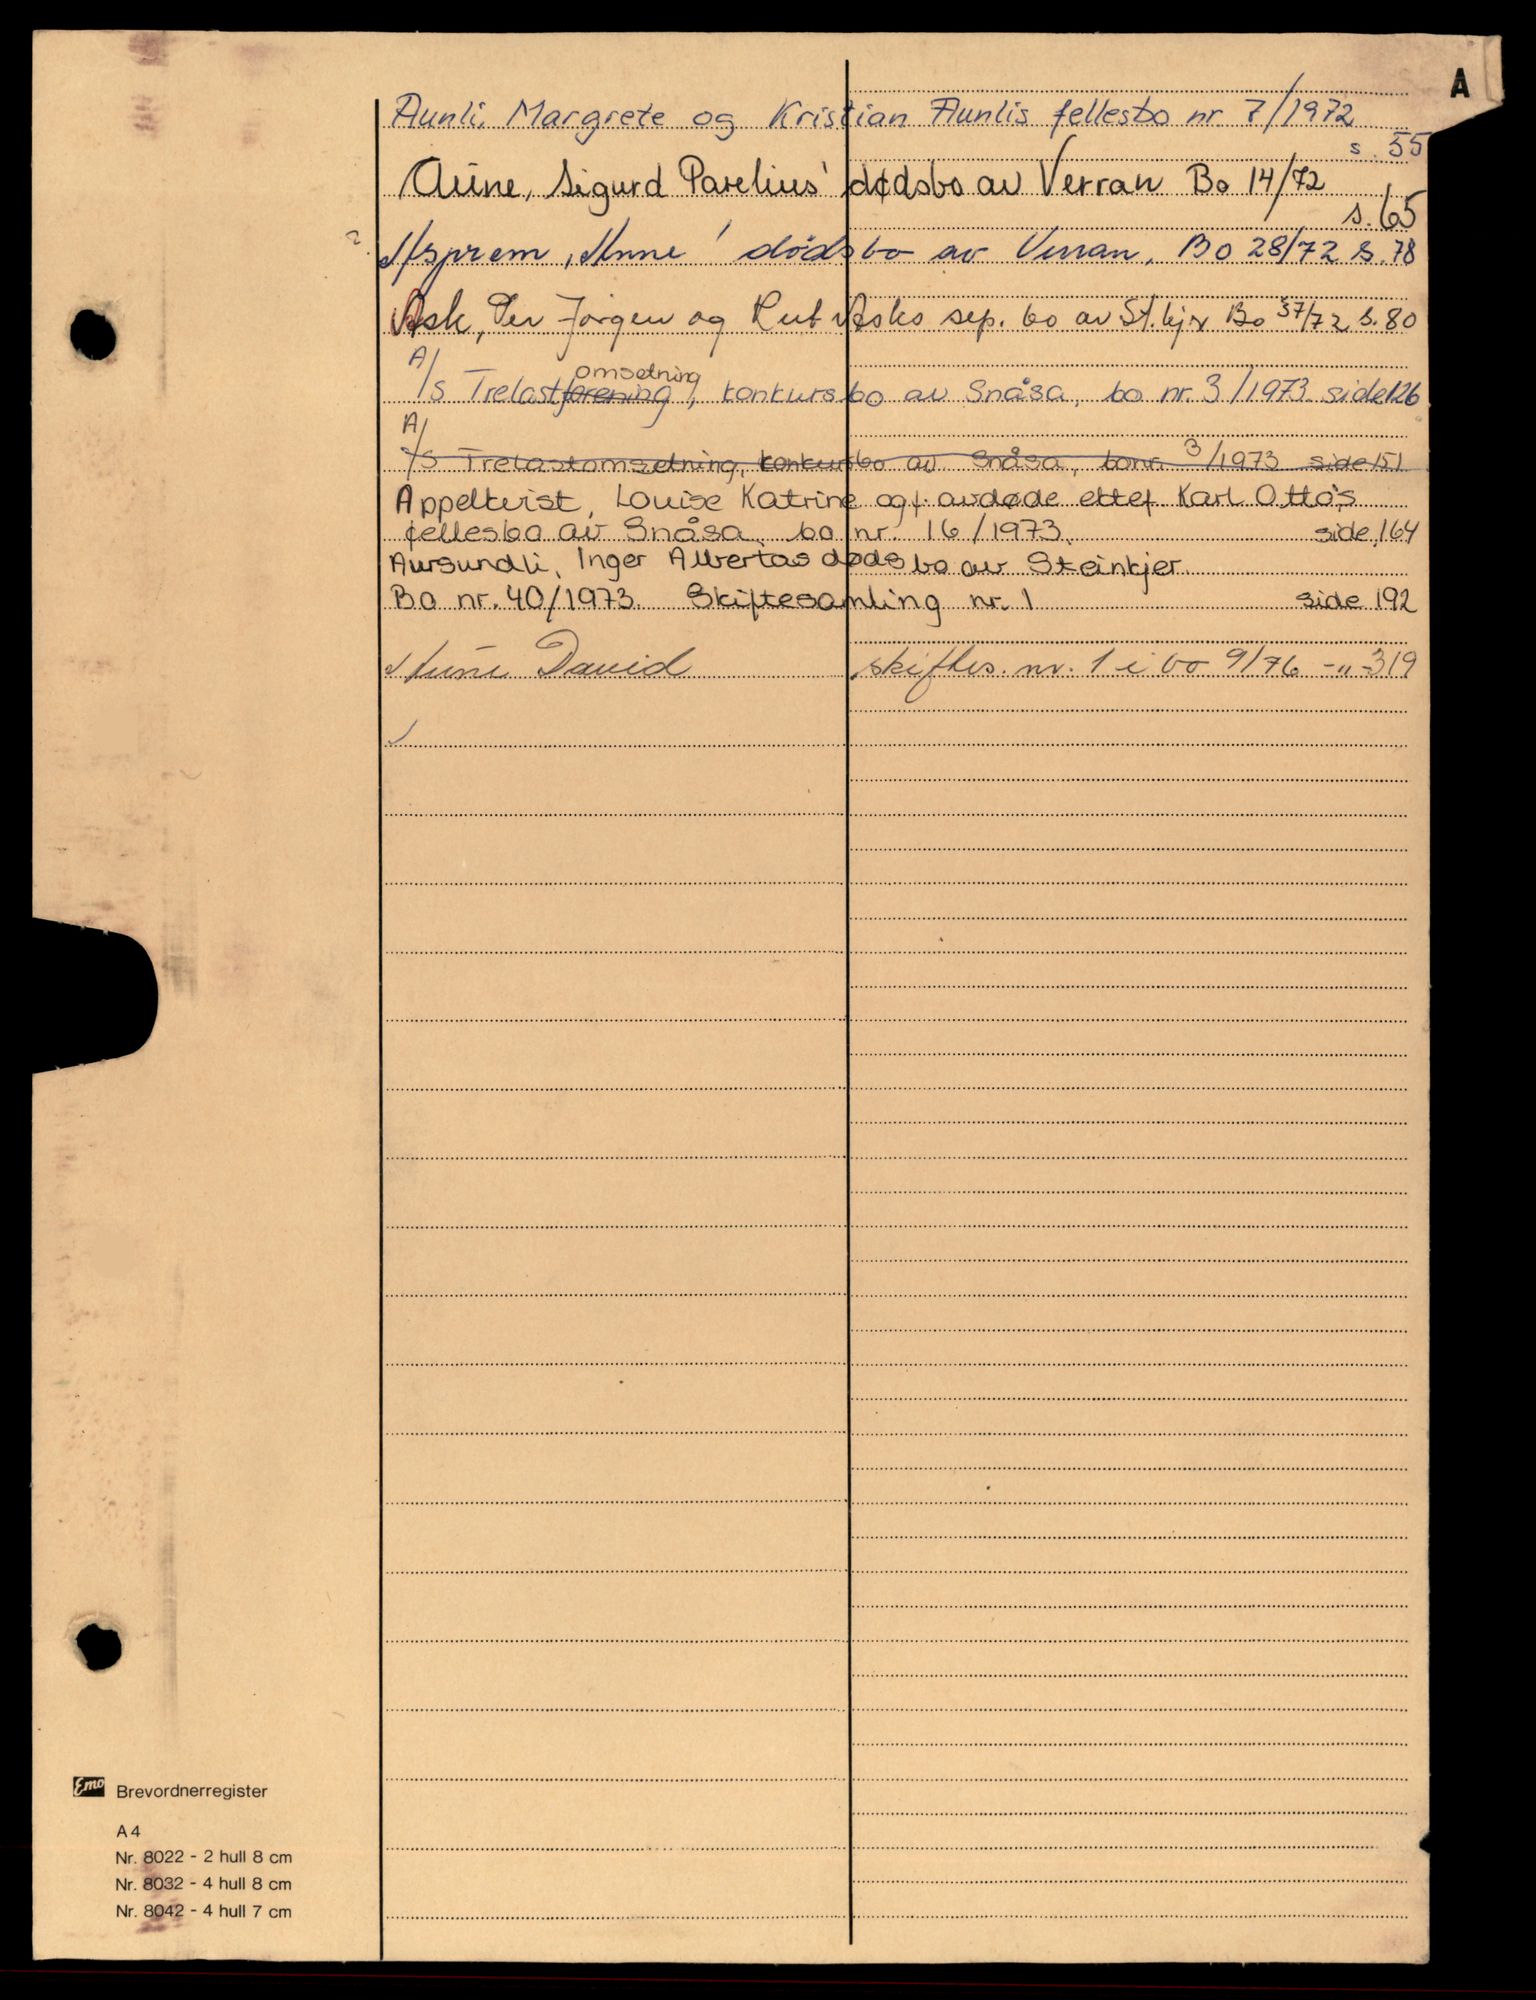 A
Aunli, Margrete og Kristian Aunlis fellesbo nr 7/1972
s. 55
Aune, Sigurd Parelius' dødsbo av Verran Bo 14/72
s. 65
Asprem, Anne' dødsbo av Verran, Bo 28/72 s. 78
Ask, Per Jørgen og Rut Asks sep. bo av St.kjer Bo 37/72 s. 80
omsetning
A/S Trelastforening, konkursbo av Snåsa, bo nr. 3/1973 side 126
A/S Trelastomsetning, konkursbo av Snåsa, bo nr. 3/1973 side 151
Appelkvist, Louise Katrine og f. avdøde ektef Karl Otto's
fellesbo av Snåsa, bo nr. 16/1973. side 164
Aursundli, Inger Albertas dødsbo av Steinkjer.
Bo nr. 40/1973. Skiftesamling nr. 1 side 192
Aune David skiftes. nr. 1 i bo 9/76 -"- 319
Emo Brevordnerregister
A4
Nr. 8022 - 2 hull 8 cm
Nr. 8032 - 4 hull 8 cm
Nr. 8042 - 4 hull 7 cm